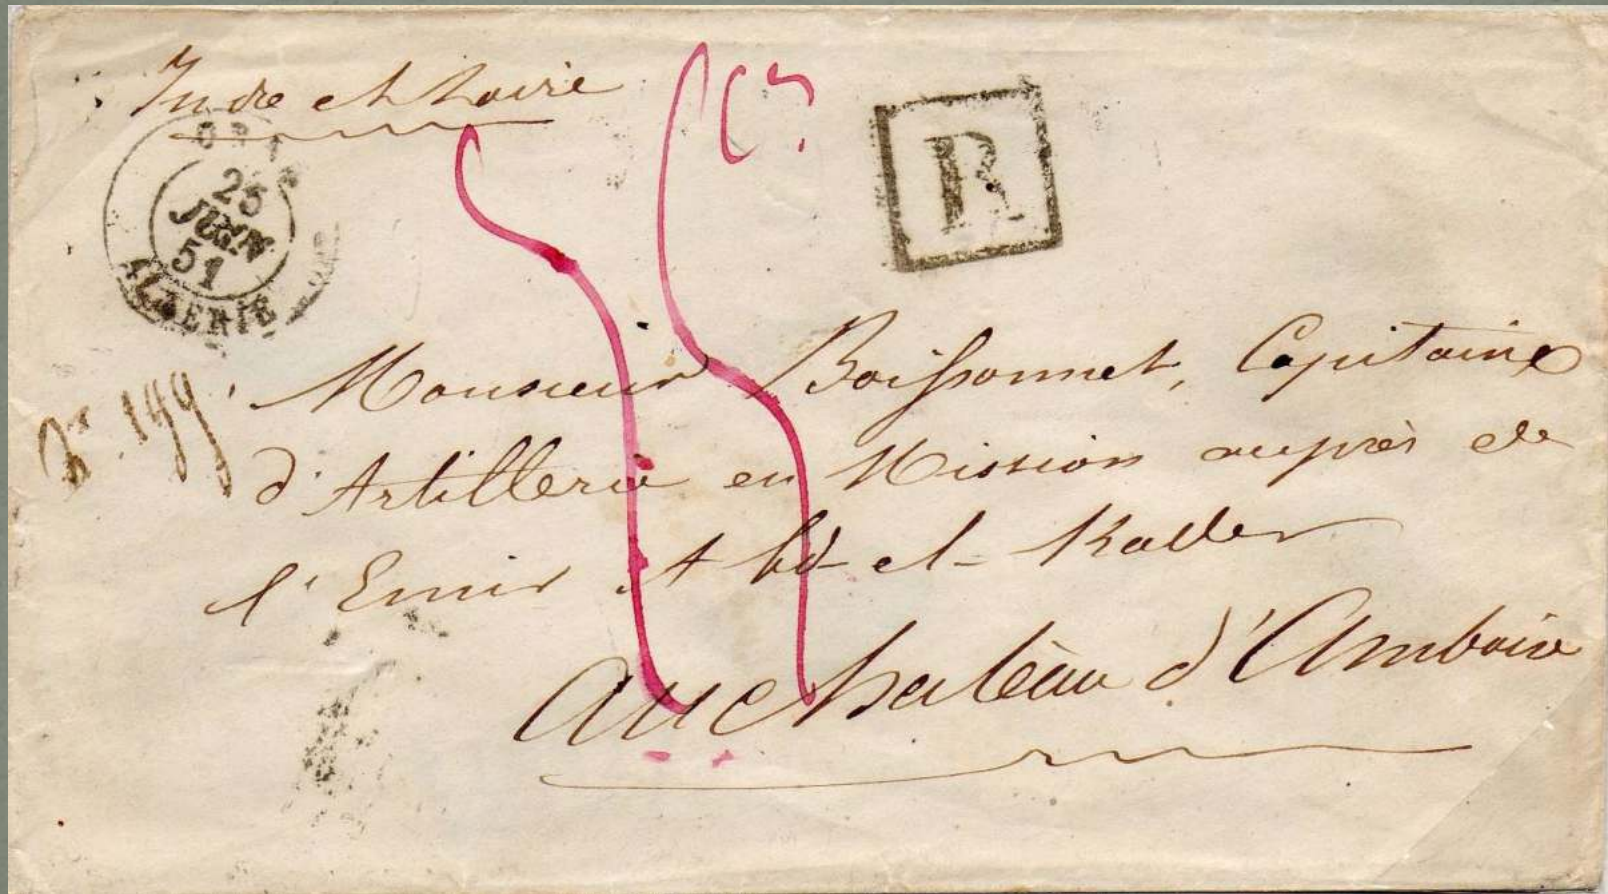 Indre et Loire
25
JUIN
51
ALGERIE
R
Monsieur Boissonnet, Capitaine
d'Artillerie en Mission auprès de
l'Emir Abd-el-Kader
au chateau d'Amboise